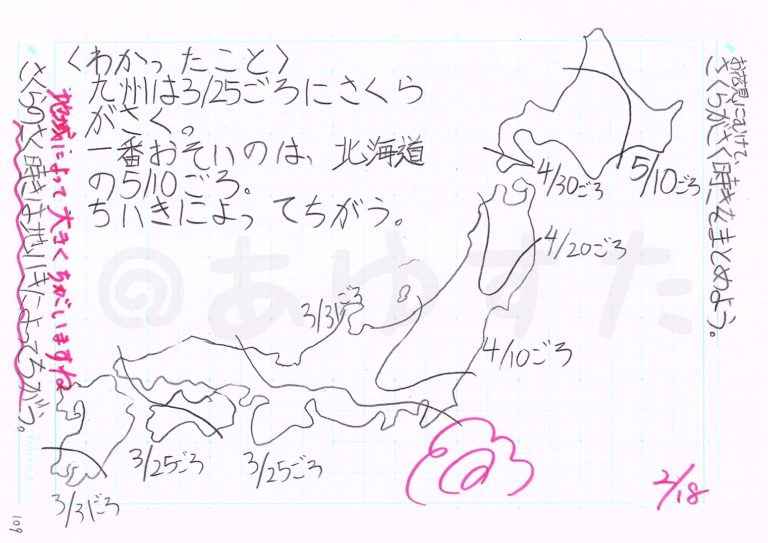 お花見にむけて、
さくらがさく時きをまとめよう。
〈わかったこと〉
九州は3/25ごろにさくら
がさく。
一番おそいのは、北海道
の5/10ごろ。
ちいきによってちがう。
5/10ごろ
4/30ごろ
4/20ごろ
4/10ごろ
3/31ごろ
3/25ごろ
3/25ごろ
3/31ごろ
地域によって大きくちがいますね
さくらのさく時きは地いきによってちがう。
2/18
109
@あゆすた